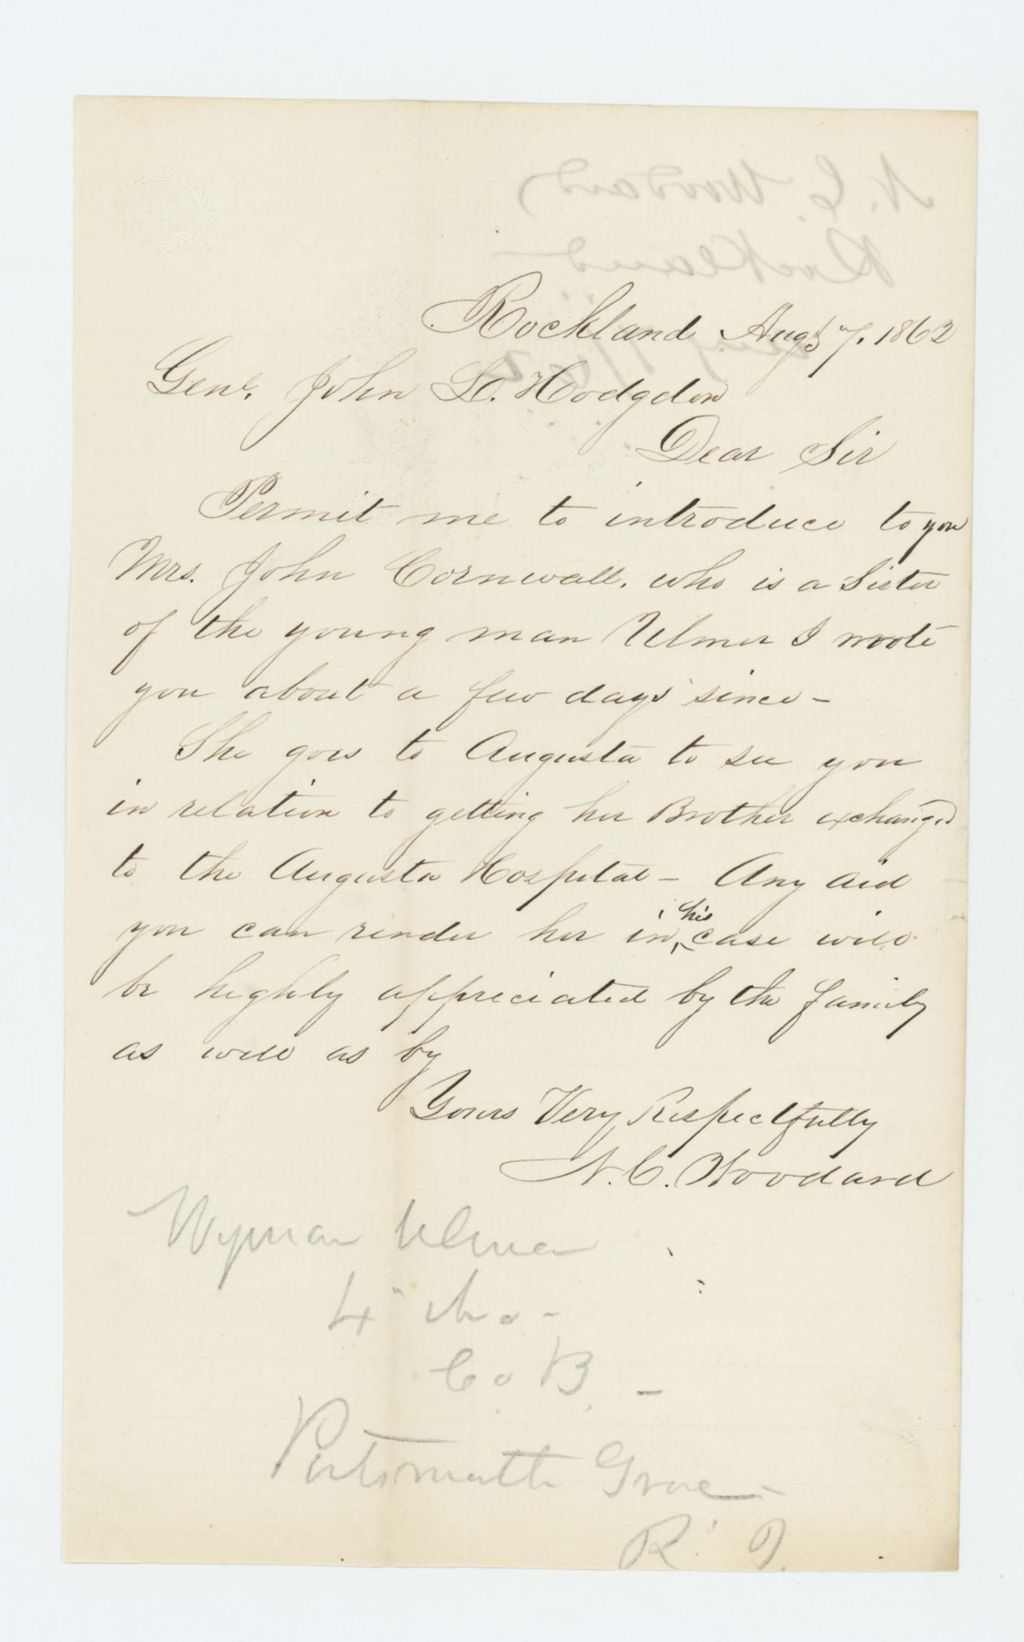 Rockland Augst 7. 1862
Genl. John L. Hodgdon
Dear Sir
Permit me to introduce to you
Mrs. John Cornwall. who is a Sister
of the young man Ulmer I wrote
you about a few days since -
She goes to Augusta to see you
in relation to getting her Brother exchanged
to the Augusta Hospital - Any aid
you can render her in his case will
be highly appreciated by the family
as well as by
Yours Very Respectfully
N. C. Woodard
Wyman Ulmer
4" Me -
Co B. -
Portsmouth Grove -
R. I.